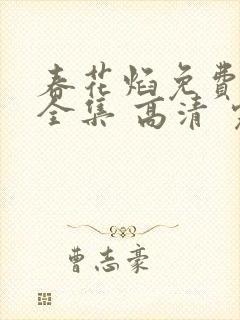 春花焰免费
全集 高清
曹志豪